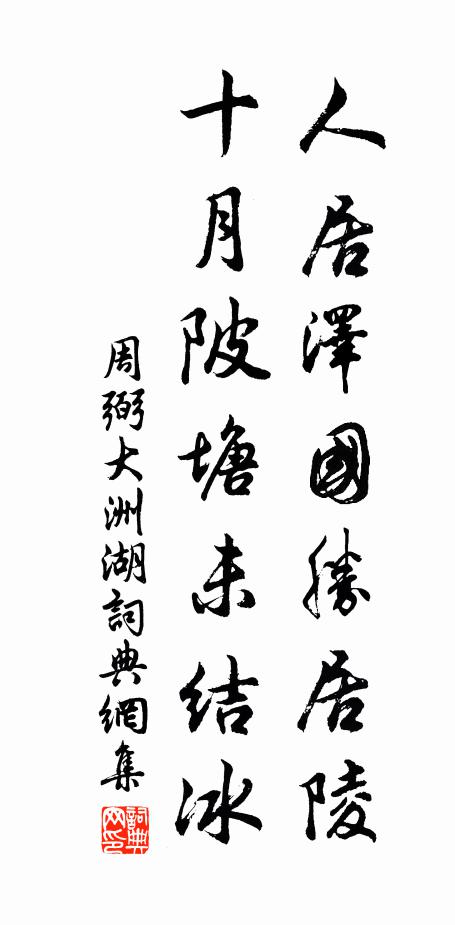 人居澤國勝居陵
十月陂塘未結冰
周弼大洲湖詞典網集
詞典網印